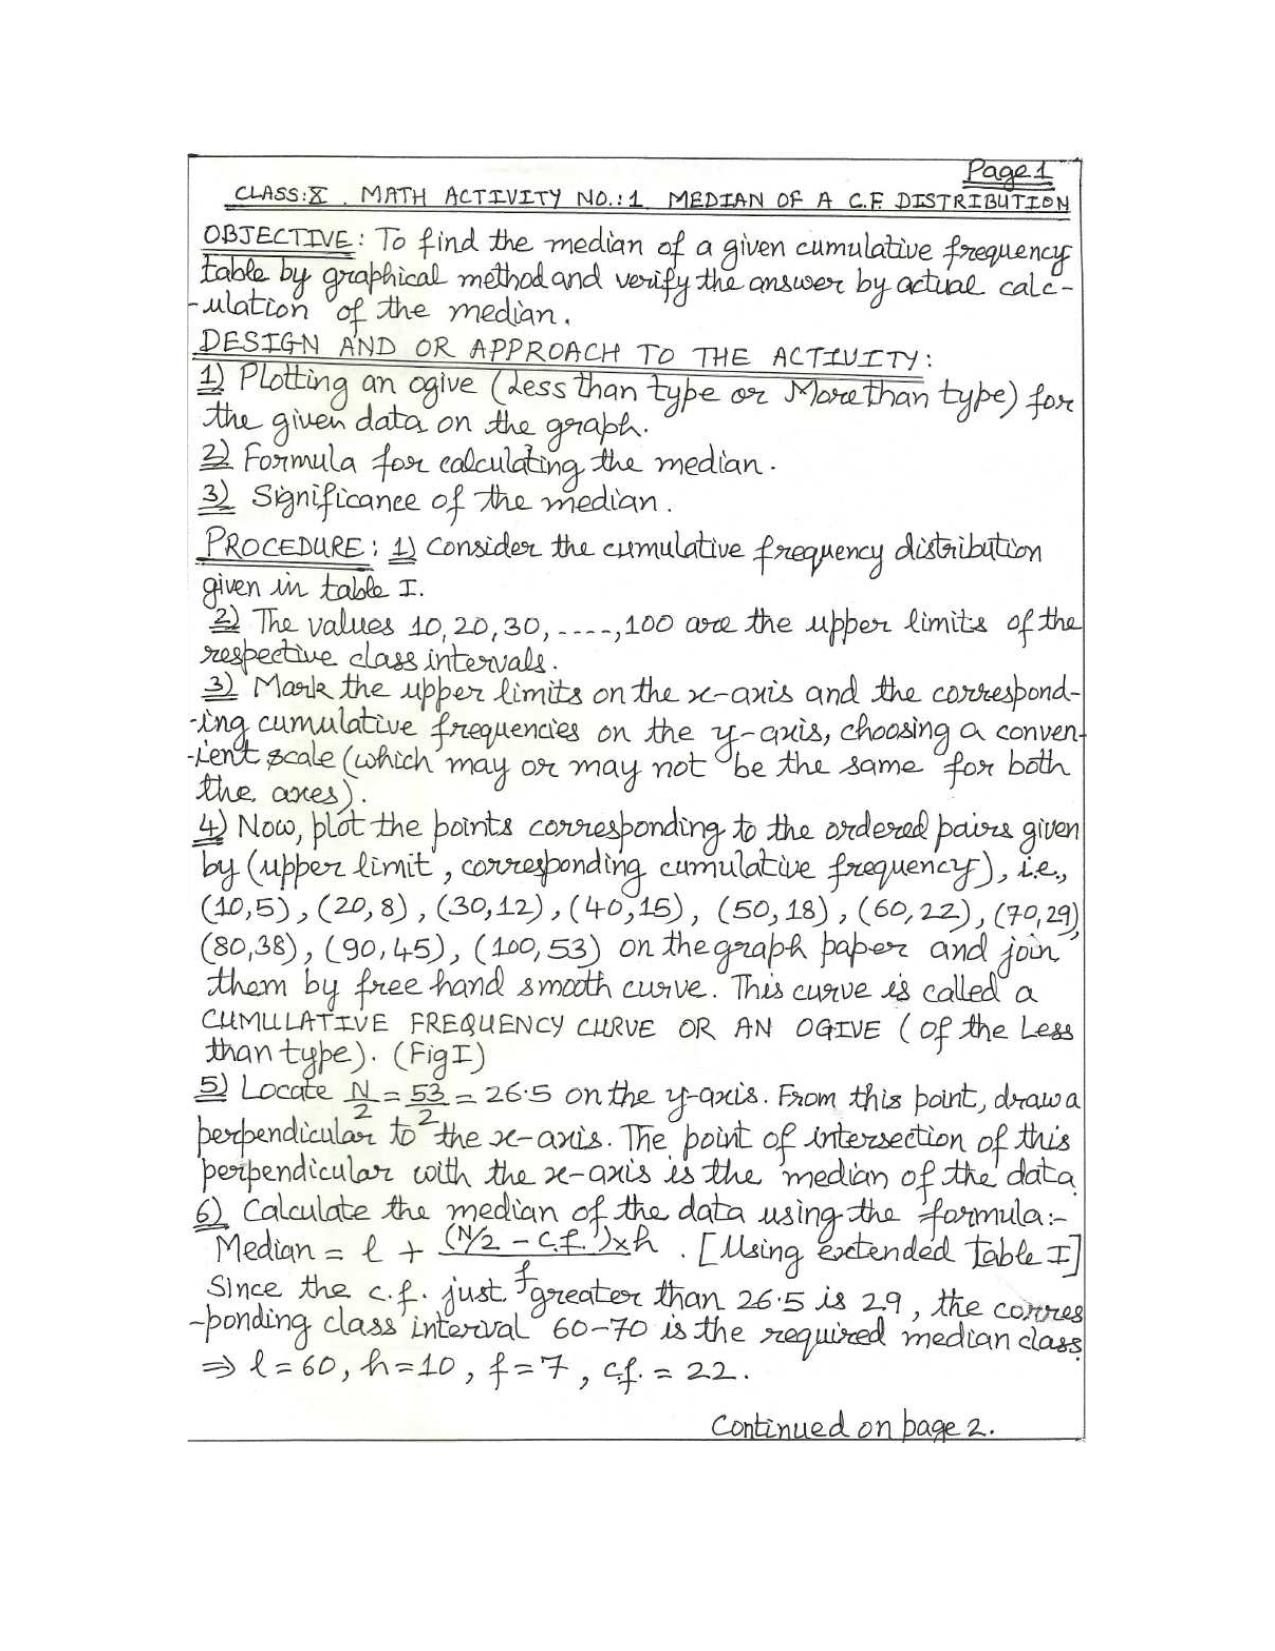 Page 1
CLASS: X . MATH ACTIVITY NO.: 1 MEDIAN OF A C.F. DISTRIBUTION
OBJECTIVE: To find the median of a given cumulative frequency
table by graphical method and verify the answer by actual calc-
-ulation of the median.
DESIGN AND OR APPROACH TO THE ACTIVITY:
1) Plotting an ogive (Less than type or More than type) for
the given data on the graph.
2) Formula for calculating the median.
3) Significance of the median.
PROCEDURE: 1) Consider the cumulative frequency distribution
given in table I.
2) The values 10, 20, 30, ----, 100 are the upper limits of the
respective class intervals.
3) Mark the upper limits on the x-axis and the correspond-
-ing cumulative frequencies on the y-axis, choosing a conven-
-ient scale (which may or may not be the same for both
the axes).
4) Now, plot the points corresponding to the ordered pairs given
by (upper limit, corresponding cumulative frequency), i.e.,
(10,5), (20,8), (30,12), (40,15), (50,18), (60,22), (70,29),
(80,38), (90,45), (100,53) on the graph paper and join
them by free hand smooth curve. This curve is called a
CUMULATIVE FREQUENCY CURVE OR AN OGIVE (of the Less
than type). (Fig I)
5) Locate N/2 = 53/2 = 26.5 on the y-axis. From this point, draw a
perpendicular to the x-axis. The point of intersection of this
perpendicular with the x-axis is the median of the data.
6) Calculate the median of the data using the formula:-
Median = l + (N/2 - c.f.)×h / f . [Using extended table I]
Since the c.f. just greater than 26.5 is 29, the corres
-ponding class interval 60-70 is the required median class.
⇒ l = 60, h = 10, f = 7, c.f. = 22.
Continued on page 2.